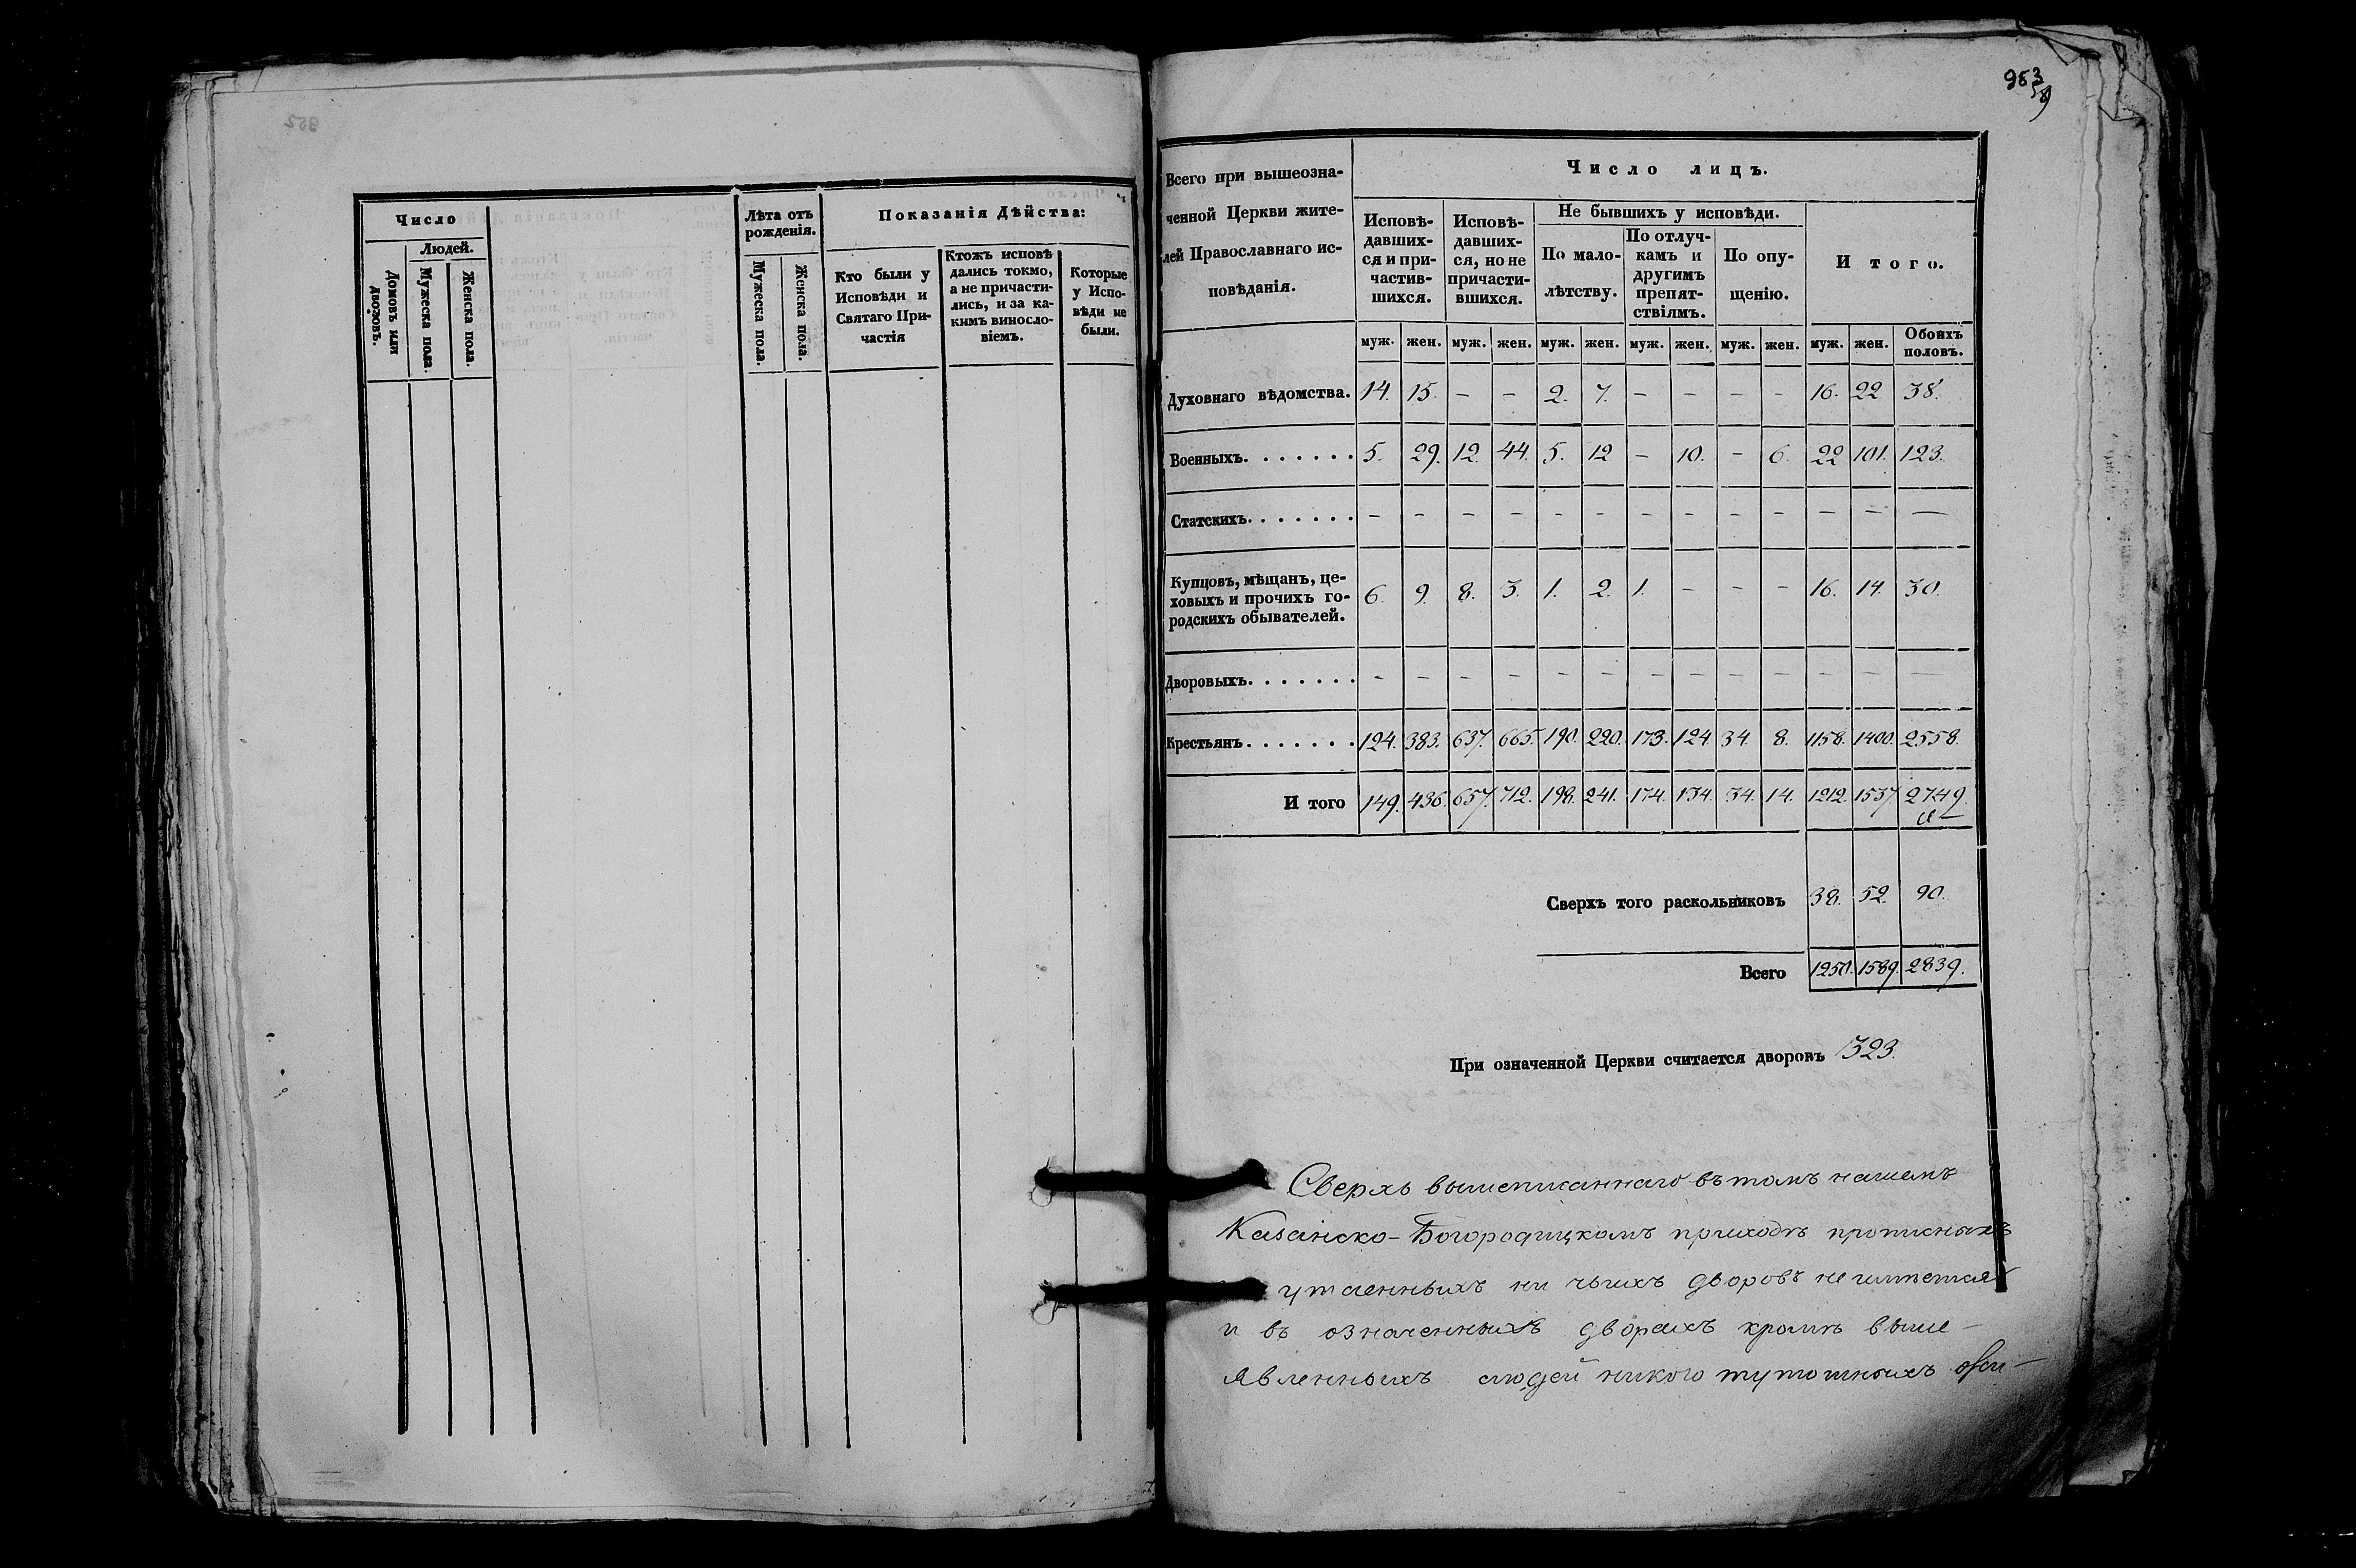 Число
Людей.
Домовъ или дворовъ.
Мужеска пола.
Женска пола.
Лѣта отъ
рожденія.
Мужеска пола.
Женска пола.
Показанія Дѣйства:
Кто были у
Исповѣди и
Святаго При-
частія
Ктожъ исповѣ
дались токмо,
а не причасти-
лись, и за ка-
кимъ винсло-
віемъ.
Которые
у Испо-
вѣди не
были.
983
Всего при вышеозна-
ченной Церкви жите-
лей Православнаго ис-
повѣданія.
Число лицъ.
Исповѣ-
давших-
ся и при-
частив-
шихся.
Исповѣ-
давших-
ся, но не
причасти-
вшихся.
Не бывшихъ у исповѣди.
По мало-
лѣтству.
По отлуч-
камъ и
другимъ
препят-
ствіямъ.
По опу-
щенію.
И того.
муж. жен. муж. жен. муж. жен. муж. жен. муж. жен. муж. жен. Обоихъ половъ.
Духовнаго вѣдомства. 14. 15. – – 2. 7. – – – – 16. 22 38.
Военныхъ. . . . . . . 5. 29. 12. 44. 5. 12 – 10. – 6. 22 101. 123.
Статскихъ. . . . . . . – – – – – – – – – – – – —
Купцовъ, мѣщанъ, це-
ховыхъ и прочихъ го-
родскихъ обывателей. 6. 9. 8. 3. 1. 2. 1. – – – 16. 14. 30.
Дворовыхъ. . . . . . . – – – – – – – – – – – – —
Крестьянъ. . . . . . . 124. 383. 637. 665. 190. 220. 173. 124. 34. 8. 1158. 1400. 2558.
И того 149. 436. 657. 712. 198. 241. 174. 134. 34. 14. 1212. 1537. 2749.
Сверхъ того раскольниковъ 38. 52. 90.
Всего 1250. 1589. 2839.
При означенной Церкви считается дворовъ 323.
Сверхъ вышеписаннаго въ томъ нашемъ
Казанско-Богородицкомъ приходѣ прописныхъ
утаенныхъ ни чьихъ дворовъ не имѣется
и въ означенныхъ дворахъ кромѣ выше-
явленныхъ людей никого тутошныхъ жи-